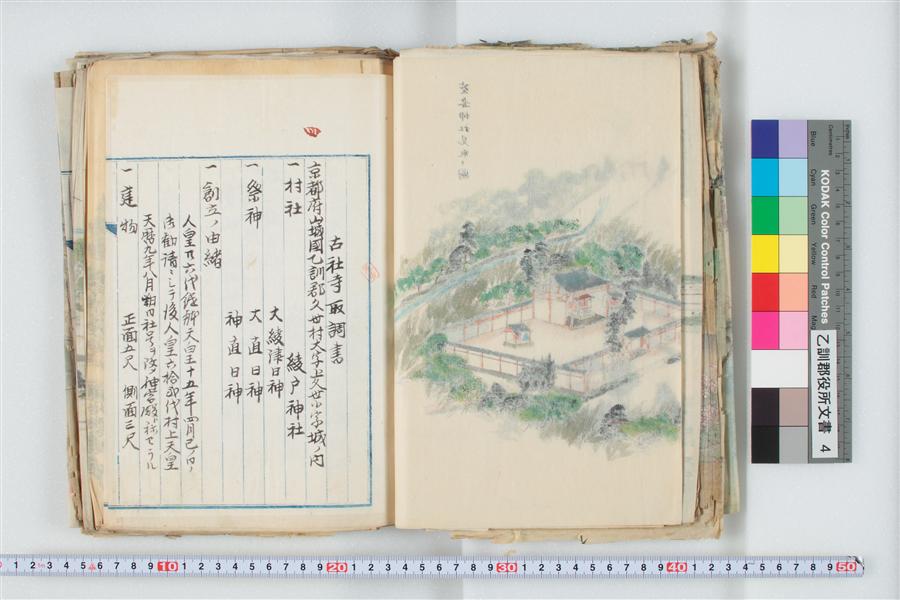 古社寺取調書
京都府山城國乙訓郡久世村大字上久世小字城ノ内
一村社 綾戸神社
一祭神 大綾津日神
大直日神
神直日神
一創立ノ由緒
人皇廿六代継体天皇十五年四月己ノ日ノ
御勧請ニシテ後人皇六拾弐代村上天皇
天暦九年八月 日社号ヲ
一建物 正面五尺 側面三尺
乙訓郡役所文書 4
KODAK Color Control Patches
Blue Cyan Green Yellow Red
Inches
Centimetres
1 2 3 4 5 6 7 8 9 10 1 2 3 4 5 6 7 8 9 20 1 2 3 4 5 6 7 8 9 30 1 2 3 4 5 6 7 8 9 40 1 2 3 4 5 6 7 8 9 50